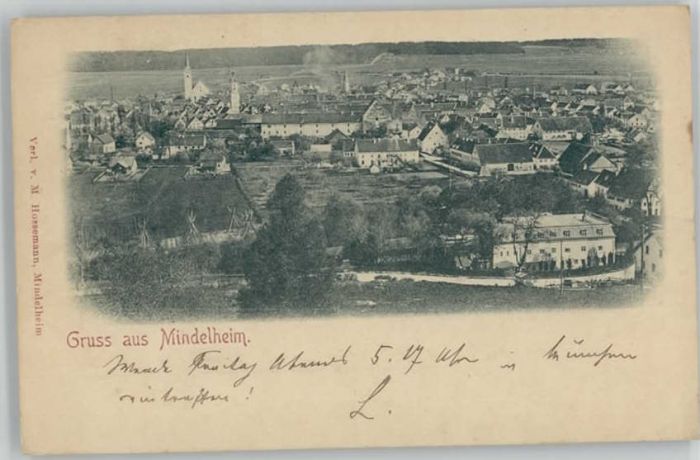 Verl. v. M. Hossemann, Mindelheim
Gruss aus Mindelheim.
Werde Freitag Abends 5.17 Uhr in München
eintreffen!
L.